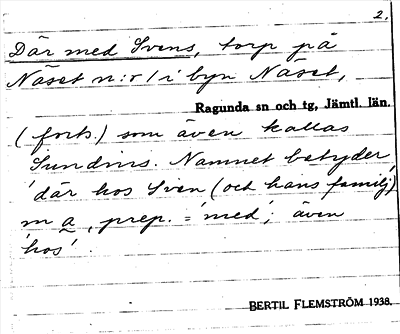 2.
Där med Svens, torp på
Näset n:r 1 i byn Näset,
Ragunda sn och tg, Jämtl. län.
(forts.) som även kallas
Sundins. Namnet betyder
'där hos Sven (och hans familj)'
m a, prep. = 'med'; även
'hos'.
BERTIL FLEMSTRÖM 1938.